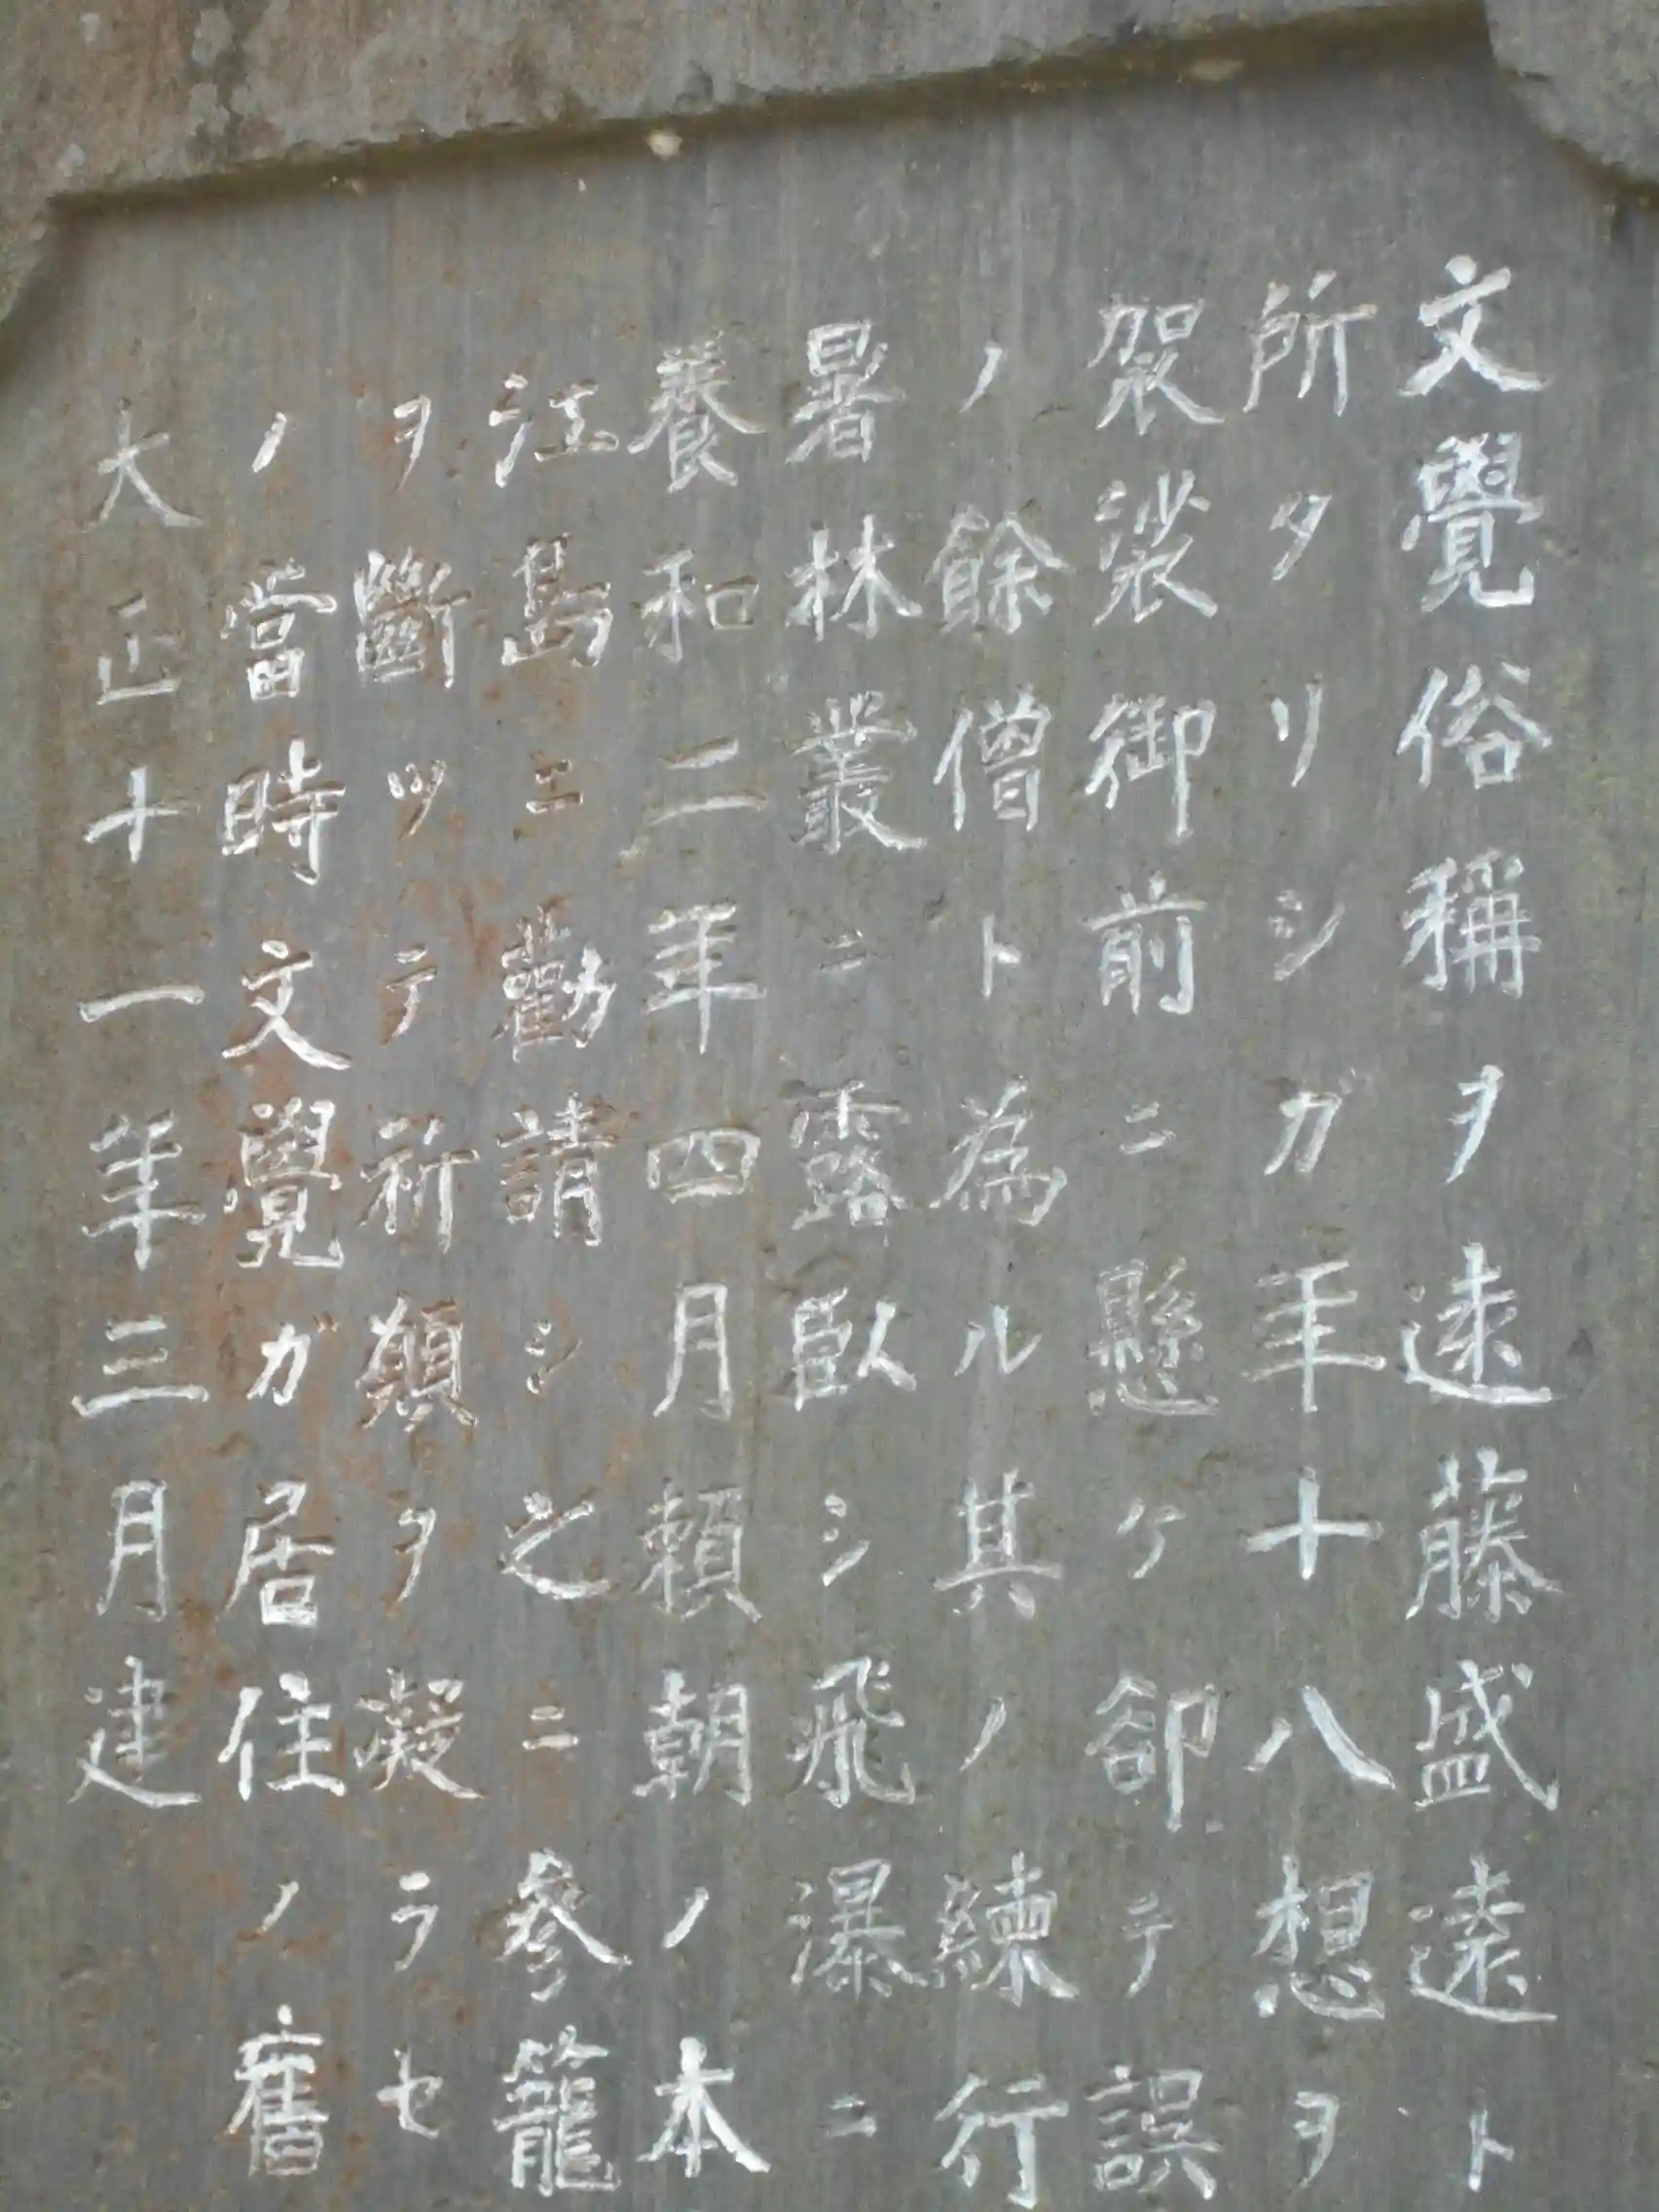 文覺俗稱ヲ遠藤盛遠ト
所タリシガ年十八想ヲ
袈裟御前ニ懸ケ卻テ誤
ノ餘僧ト為ル其ノ練行
暑林叢ニ露臥シ飛瀑ニ
養和二年四月頼朝ノ本
江島ニ勸請シ之ニ參籠
ヲ斷ツテ祈願ヲ凝ラセ
ノ當時文覺ガ居住ノ舊
大正十一年三月建